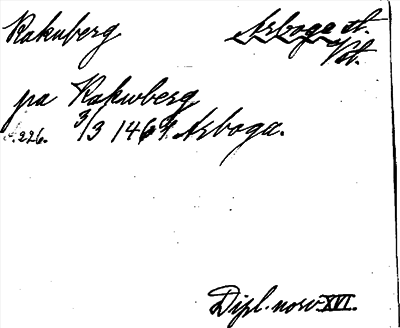 Rakuberg Arboga st.
Vstm.
pa Rakwberg
s. 226. 3/3 1469 Arboga.
Dipl. norv. XVI.